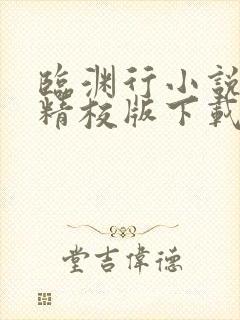 臨渊行小說
精校版下載
堂吉偉德